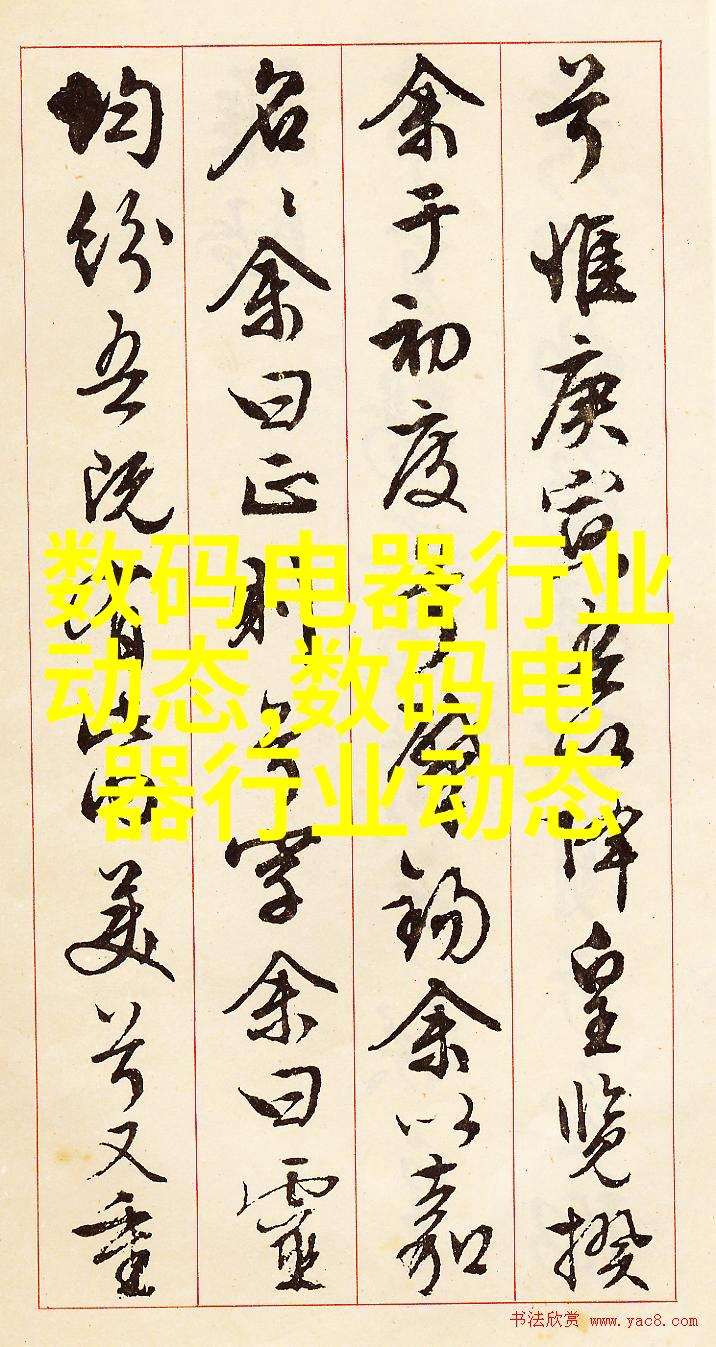 兮惟庚寅吾以降皇覽揆
余于初度兮肇錫余以嘉
名〻余曰正則兮字余曰靈
均紛吾既有此内美兮又重
数码电器行业
动态,数码电
器行业动态
书法欣赏 www.yac8.com